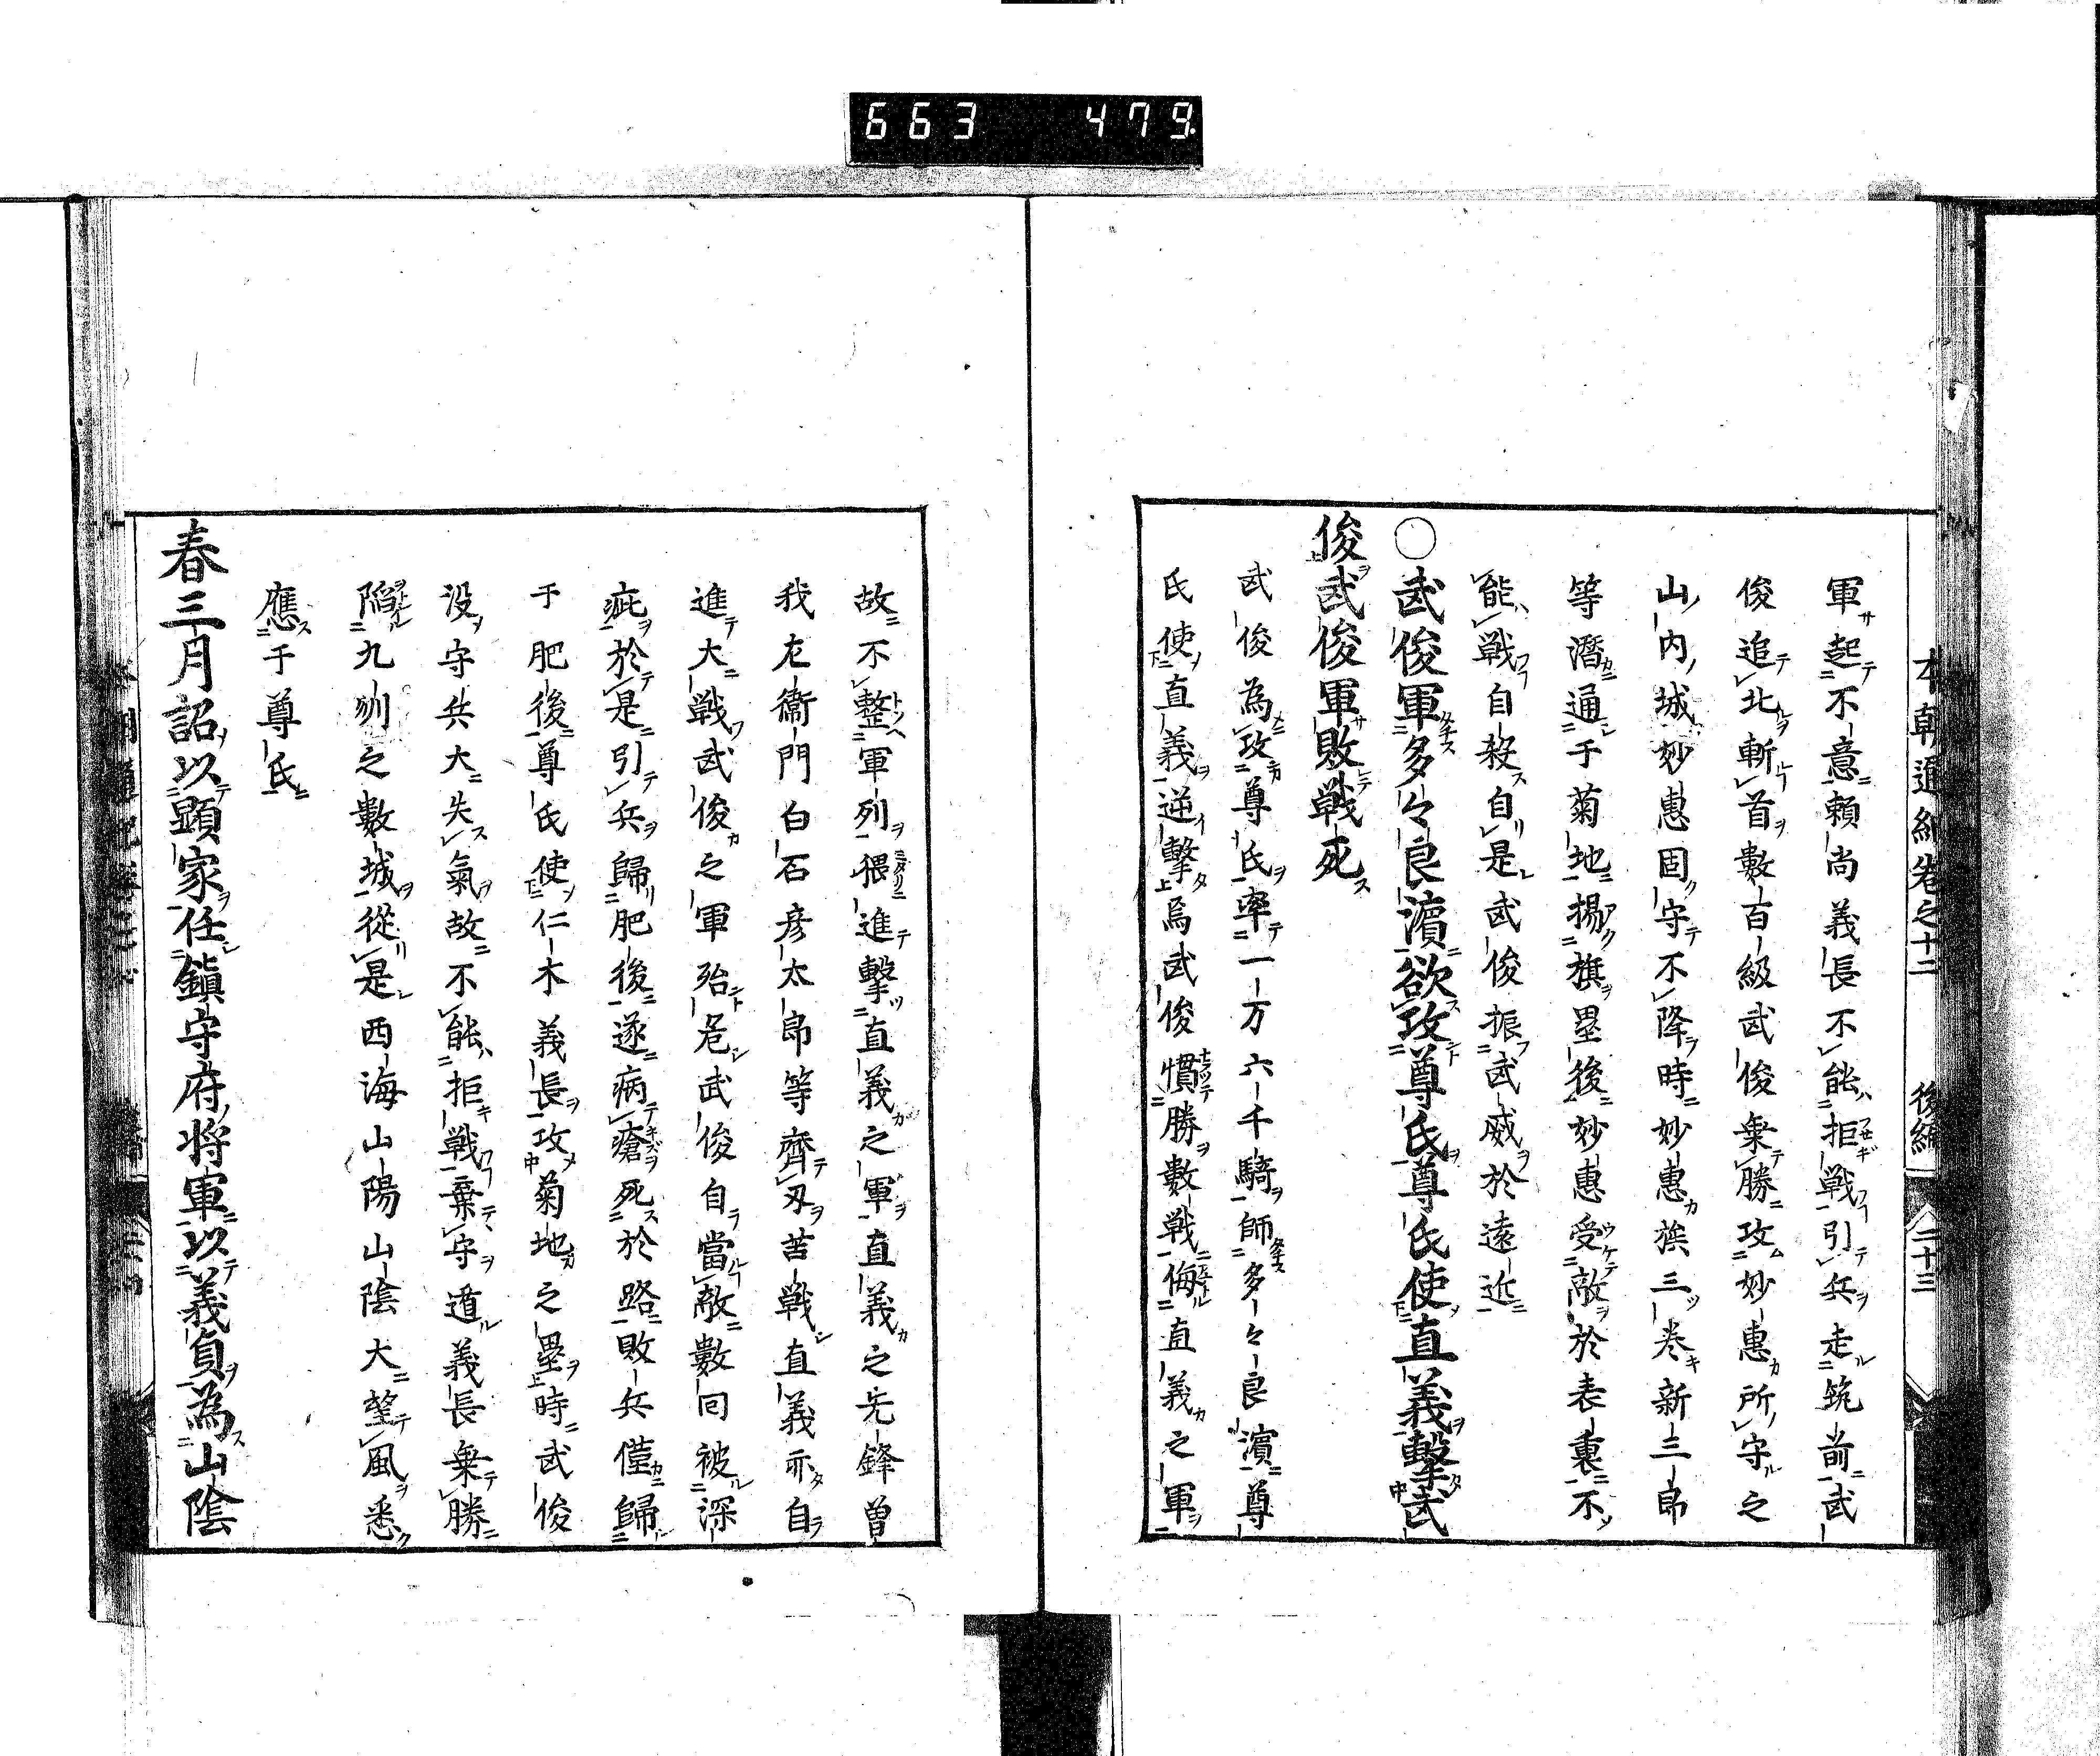 663 479.
本朝通紀卷之十二 後編 二十三
軍起不意頼尚義長不能拒戦引兵走筑前武
俊追北斬首數百級武俊乗勝攻妙惠所守之
山内城妙惠固守不降時妙惠族三巻新三郎
等潛通于菊地揚旗塁後妙惠受敵於表裏不
能戦自殺自是武俊振武威於遠近
○武俊軍多々良濵欲攻尊氏尊氏使直義擊武
俊武俊軍敗戦死
武俊為攻尊氏率一万六千騎師多々良濵尊
氏使直義逆擊焉武俊慣勝數戦侮直義之軍
故不整軍列猥進擊直義之軍直義之先鋒曽
我左衞門白石彦太郎等齊刄苦戦直義亦自
進大戦武俊之軍殆危武俊自當敵數囘被深
疵於是引兵歸肥後遂病瘡死於路敗兵僅歸
于肥後尊氏使仁木義長攻菊地之塁時武俊
没守兵大失氣故不能拒戦棄守遁義長乗勝
陥九州之數城從是西海山陽山陰大望風悉
應于尊氏
春三月詔以顕家任鎮守府将軍以義貟為山陰